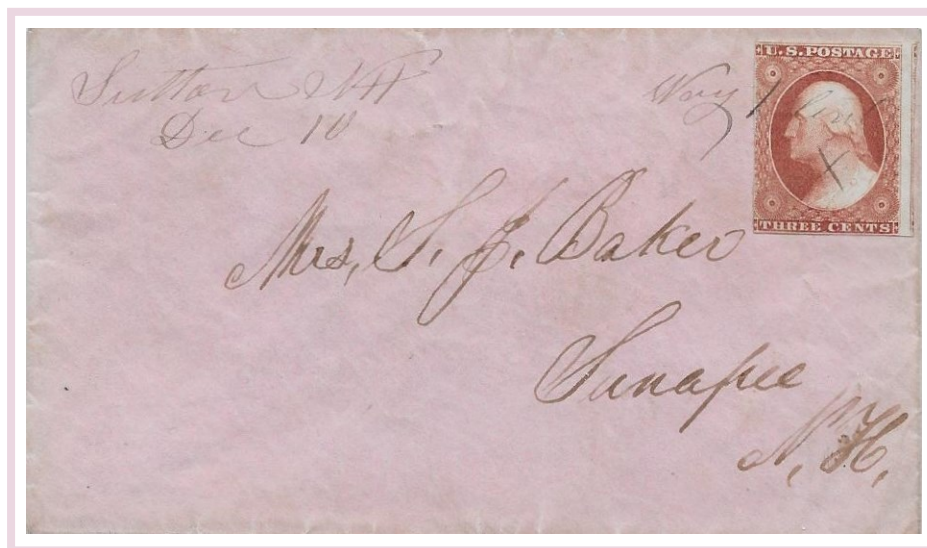 Sutton NH
Dec 10
Way
U.S. POSTAGE
THREE CENTS
Mrs, S. J. Baker
Sunapee
N. H.